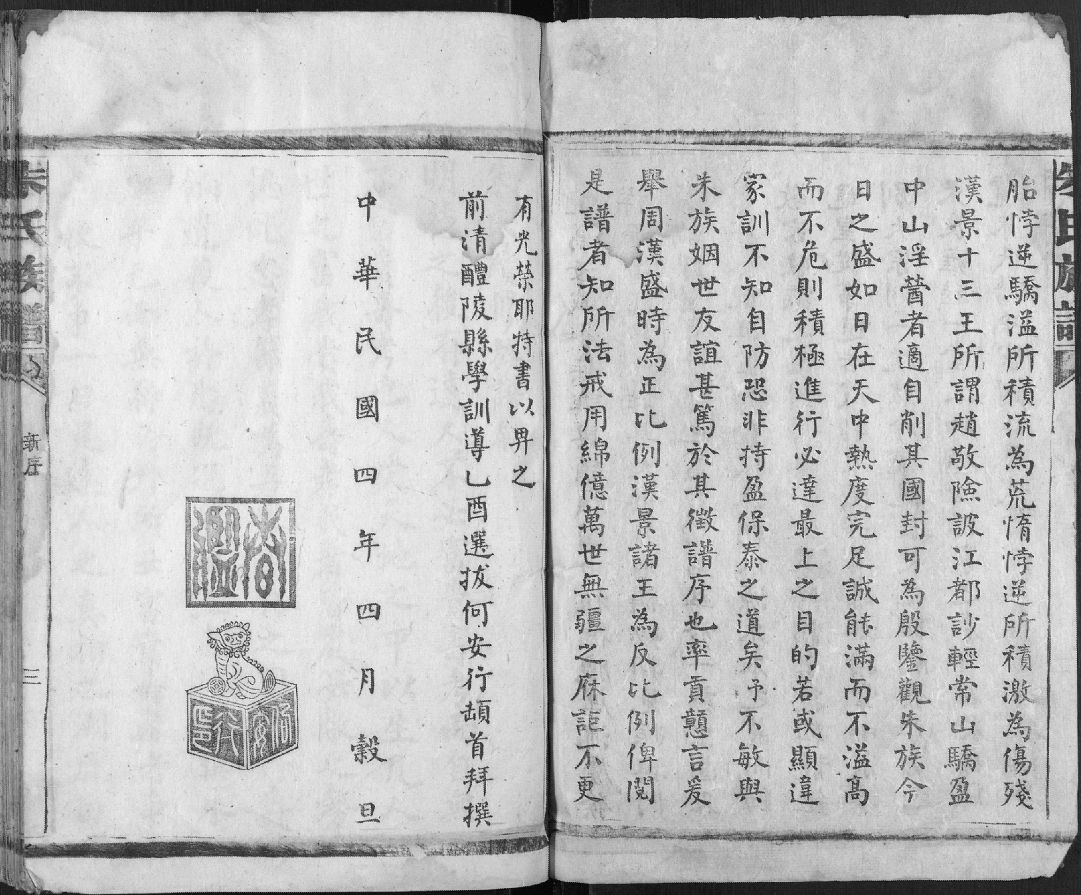 胎悖逆驕溢所積流為荒惰悖逆所積激為傷殘
漢景十三王所謂趙敬險詖江都訬輕常山驕盈
中山淫醟者適自削其國封可為殷鑒觀朱族今
日之盛如日在天中熱度完足誠能滿而不溢高
而不危則積極進行必達最上之目的若或顯違
家訓不知自防恐非持盈保泰之道矣予不敏與
朱族姻世友誼甚篤於其徵譜序也率貢戇言爰
舉周漢盛時為正比例漢景諸王為反比例俾閱
是譜者知所法戒用綿億萬世無疆之庥詎不更
有光榮耶特書以畀之
前清醴陵縣學訓導乙酉選拔何安行頓首拜撰
中華民國四年四月穀旦
朱氏族譜
新序
三
朱氏族譜